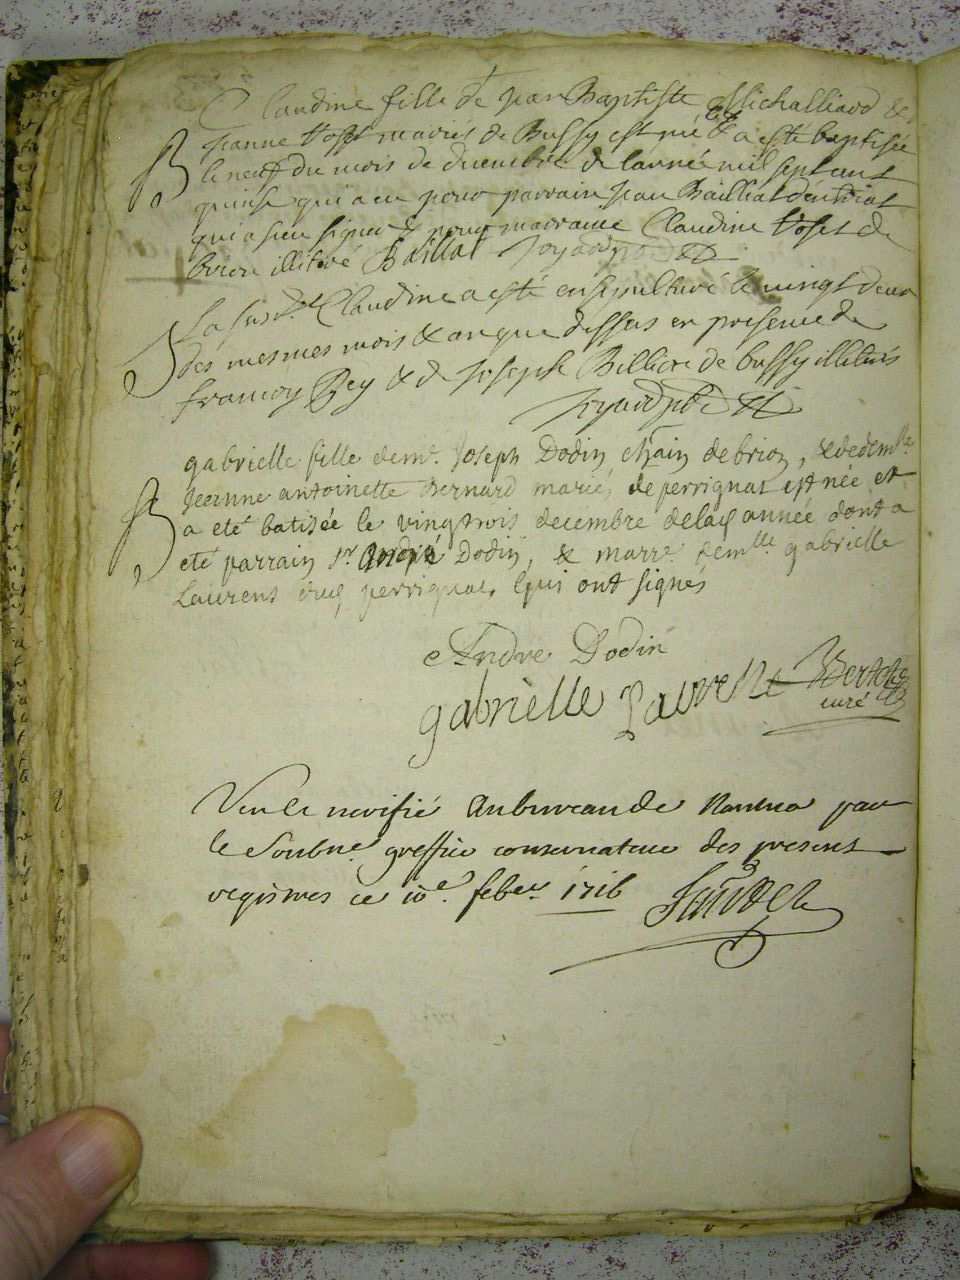 Claudine fille de Jean Baptiste Michalliard &
B
Jeanne Tosset mariés de Bussy est née & a esté baptisée
le neuf du mois de decembre de l'année mil sept cent
quinse qui a eu pour parrain Jean Bailliat
qui a sceu signer & pour marraine Claudine Tosset de
brion illitéré Baillat
S
La susd.e Claudine a esté ensepulturé le vingt deux
des mesmes mois & an que dessus en presence de
francoy Rey & de Joseph Billion de bussy illiterés
gabrielle fille de mr. Joseph Dodin chãin de brion, & de demlle
B
Jeanne antoinette Bernard mariés de perrignat est née et
a eté batisée le vingtrois decembre de la année dont a
eté parrain sr. andré Dodin, & marre. demlle. gabrielle
Laurens perrignat, qui ont signés
Andre Dodin
gabrielle
curé
Veu le verifié au bureau de Nantua par
le Soubne. greffier conservateur des present
registres ce 10e. feber. 1716